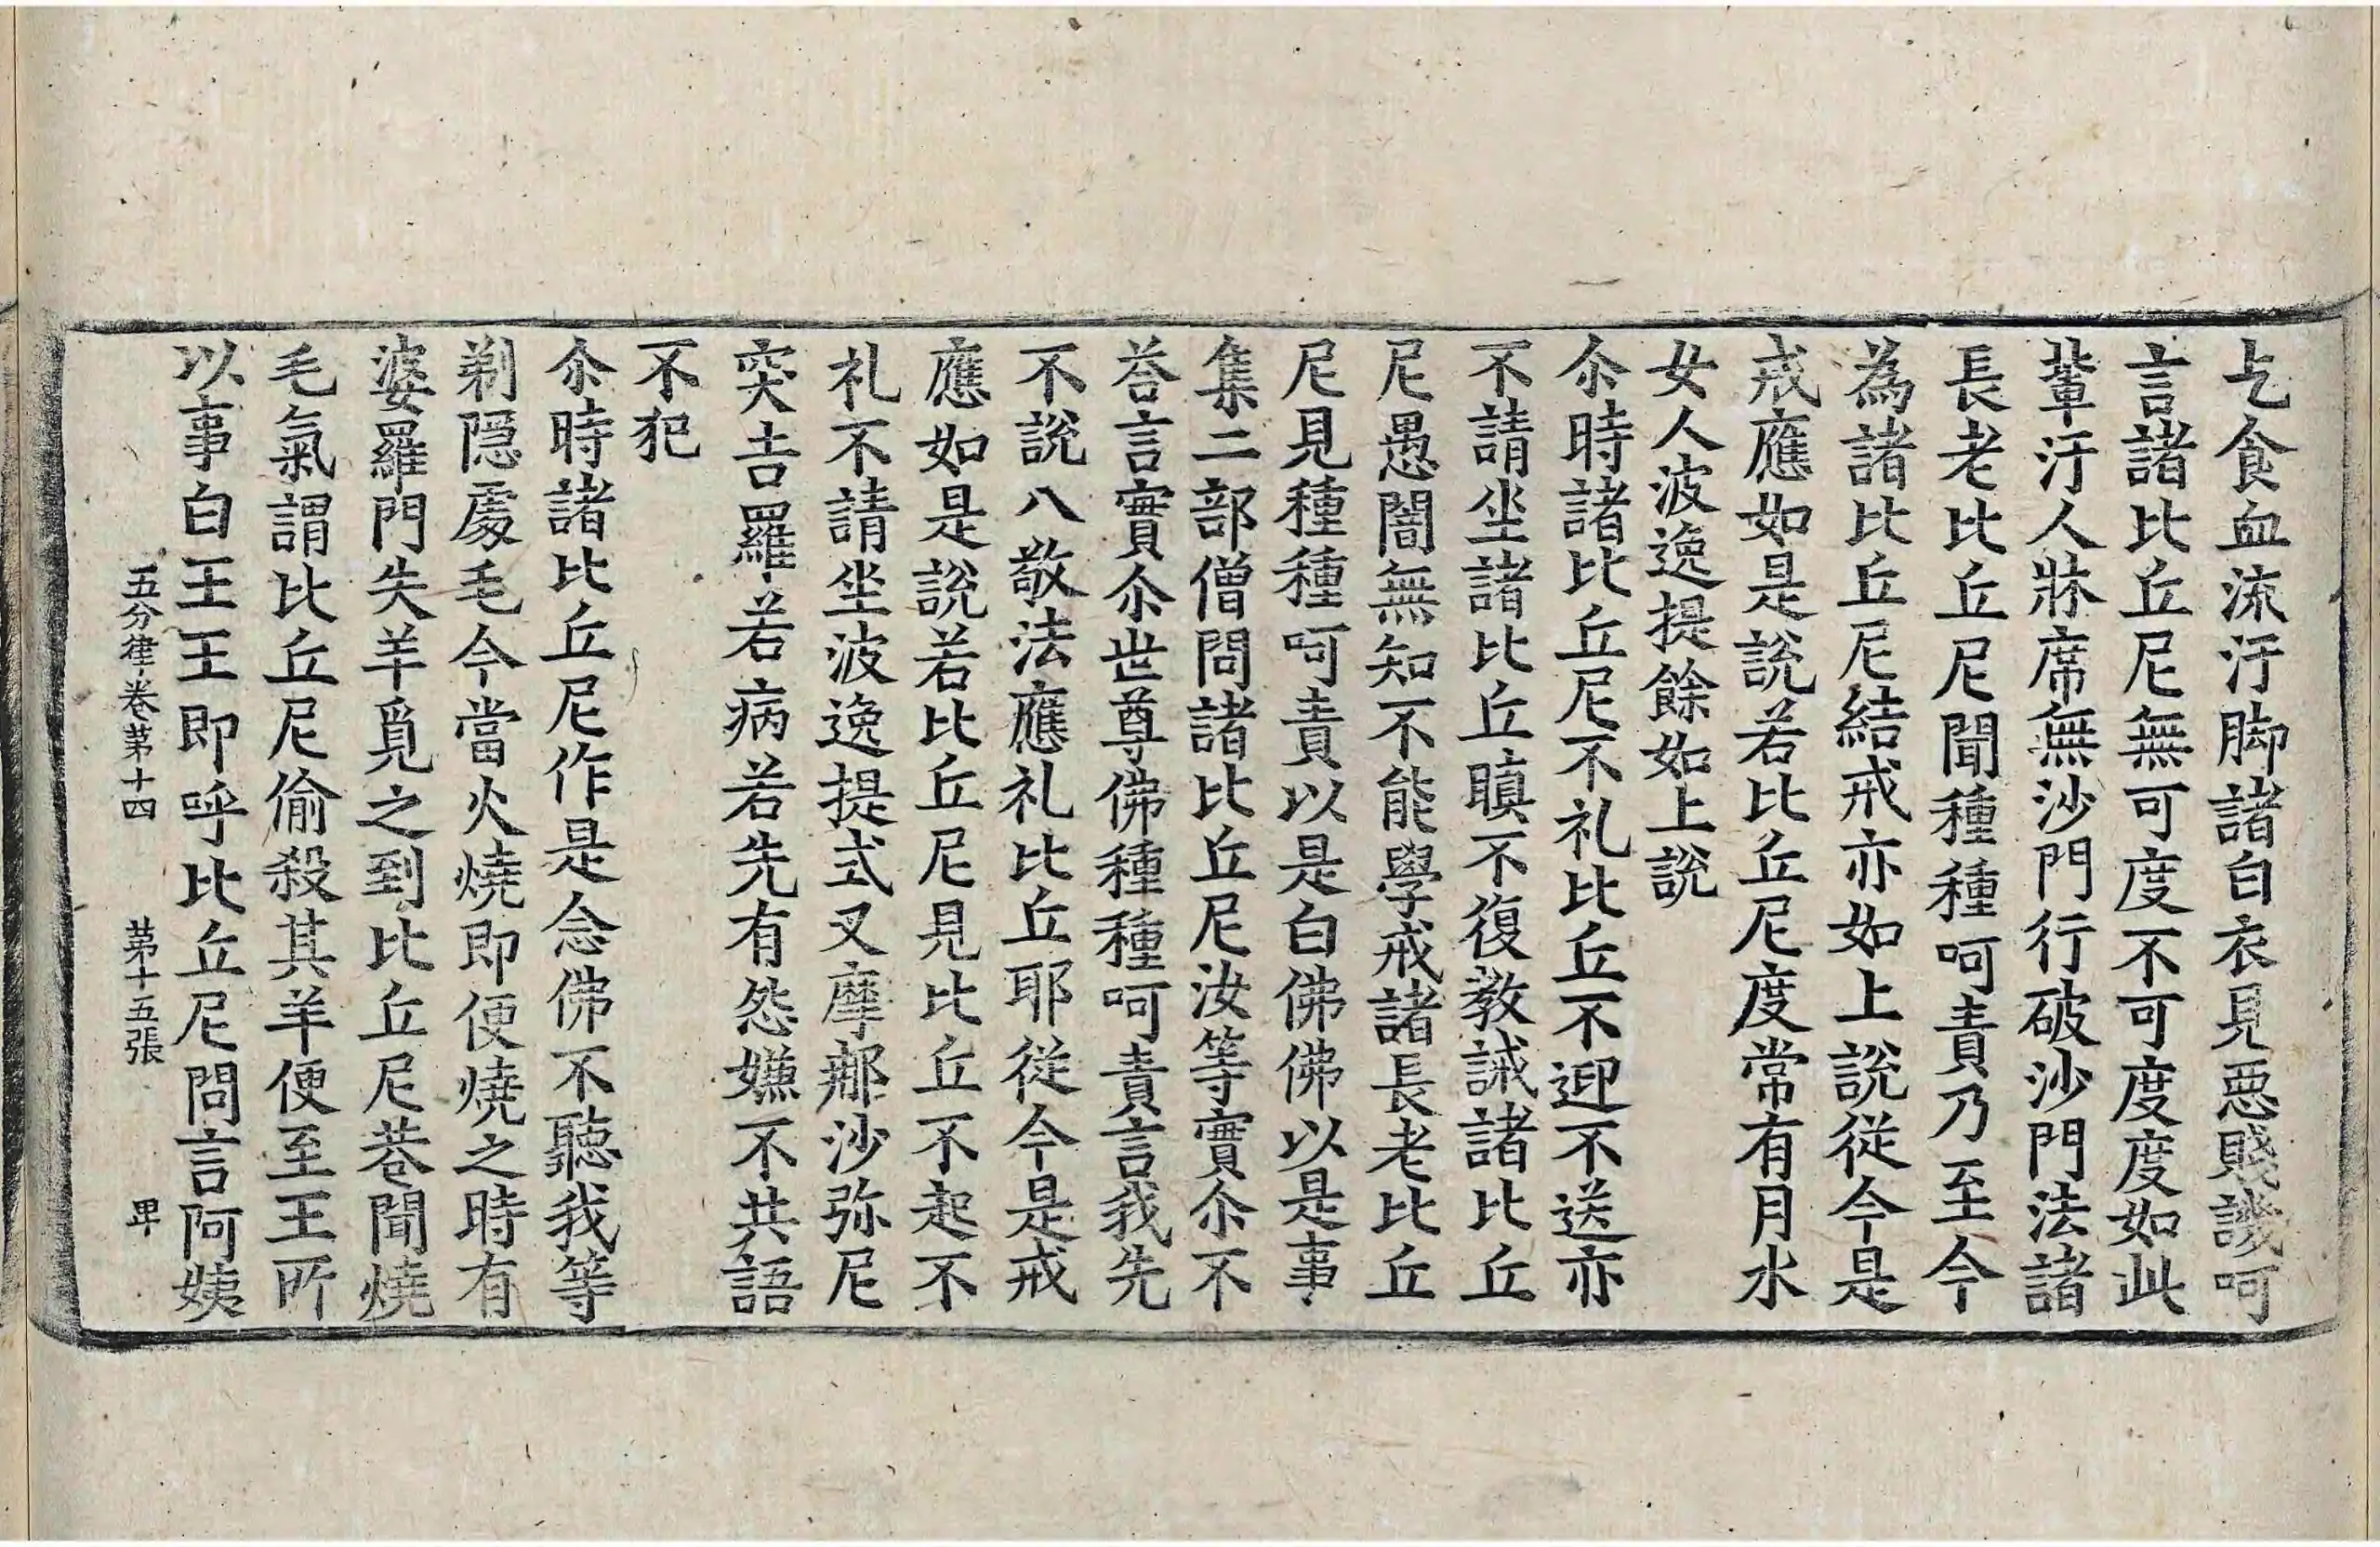 乞食血流汙脚諸白衣見惡賤譏呵
言諸比丘尼無可度不可度度如此
輩汙人牀席無沙門行破沙門法諸
長老比丘尼聞種種呵責乃至今
為諸比丘尼結戒亦如上說從今是
戒應如是說若比丘尼度常有月水
女人波逸提餘如上說
尒時諸比丘尼不礼比丘不迎不送亦
不請坐諸比丘瞋不復教誡諸比丘
尼愚闇無知不能學戒諸長老比丘
尼見種種呵責以是白佛佛以是事
集二部僧問諸比丘尼汝等實尒不
荅言實尒世尊佛種種呵責言我先
不說八敬法應礼比丘耶從今是戒
應如是說若比丘尼見比丘不起不
礼不請坐波逸提式叉摩那沙弥尼
突吉羅若病若先有怨嫌不共語
不犯
尒時諸比丘尼作是念佛不聽我等
剃隱處毛今當火燒即便燒之時有
婆羅門失羊覓之到比丘尼巷聞燒
毛氣謂比丘尼偷殺其羊便至王所
以事白王王即呼比丘尼問言阿姨
五分律卷第十四 第十五張 卑